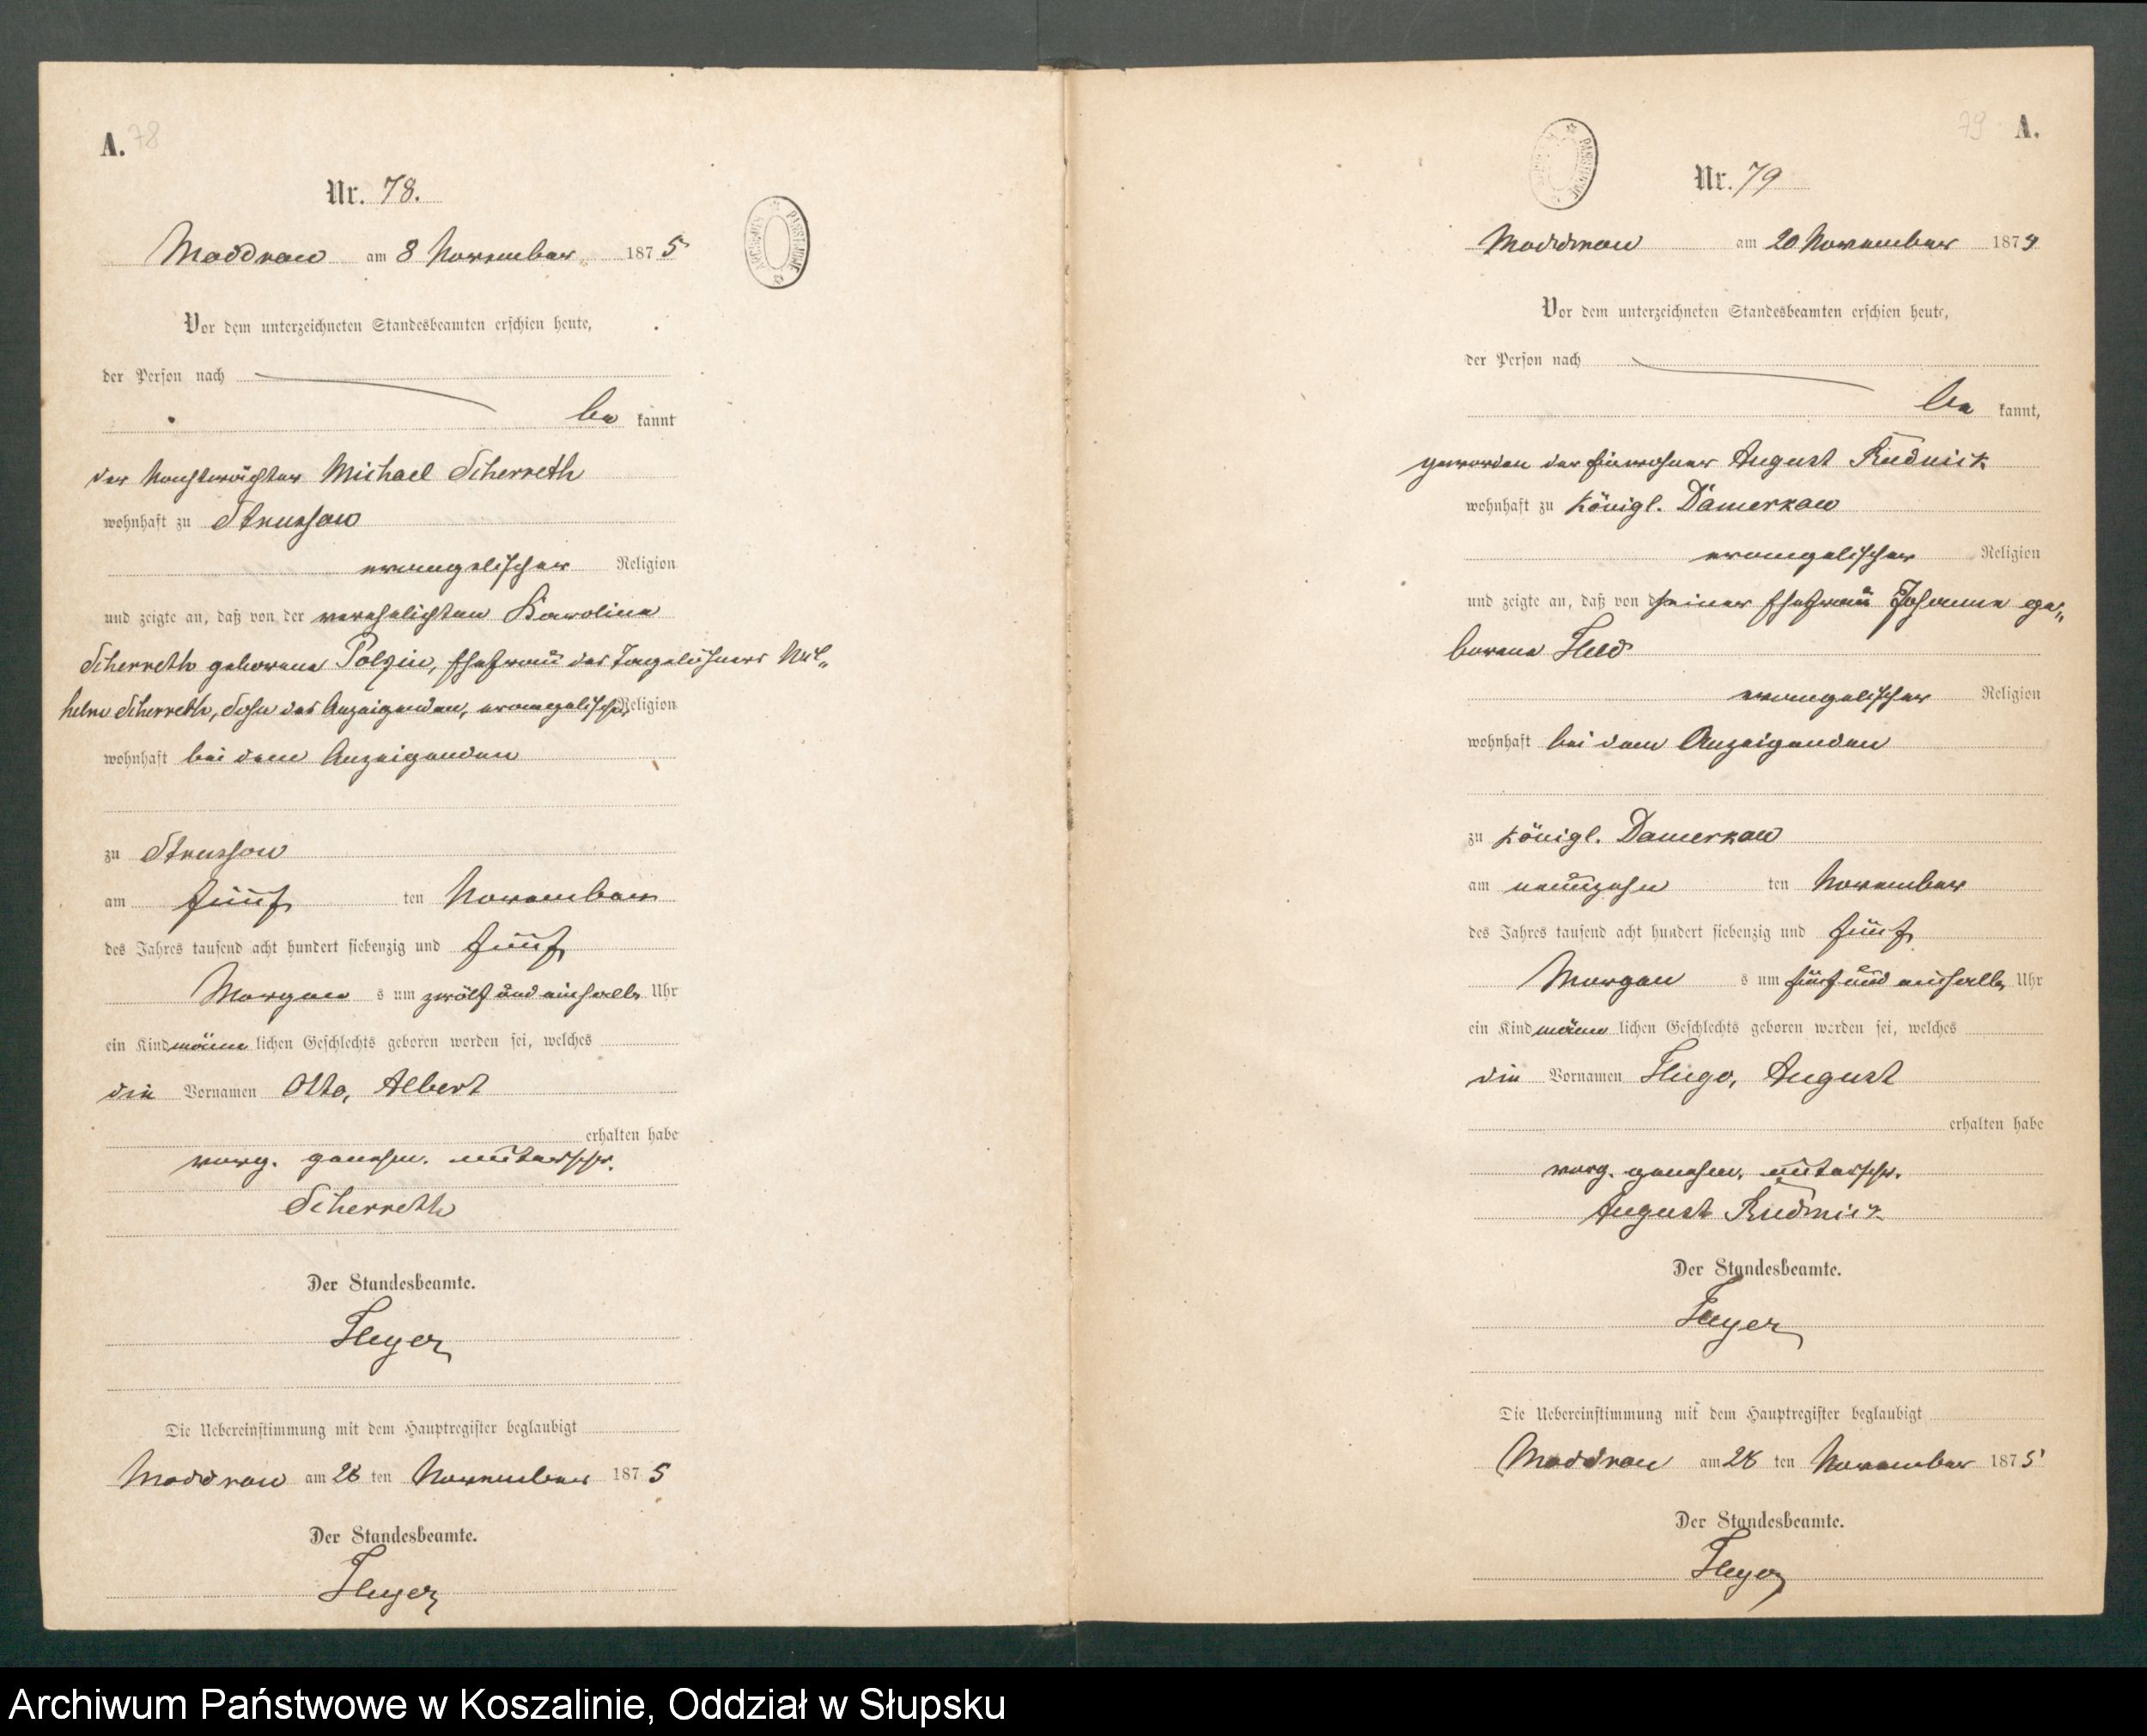 A. 78
Nr. 78.
Moddrow am 8 November 1875
Vor dem unterzeichneten Standesbeamten erschien heute,
der Person nach
be kannt
der Nachtwächter Michael Scherreth
wohnhaft zu Strussow
evangelischer Religion
und zeigte an, daß von der verehelichten Karoline
Scherreth geborene Polzin, Ehefrau des Tagelöhners Wil„
helm Scherreth, Sohn des Anzeigenden, evangelischer Religion
wohnhaft bei dem Anzeigenden
zu Strussow
am fünf ten November
des Jahres tausend acht hundert siebenzig und fünf
Morgen s um zwölf und einhalb Uhr
ein Kind männ lichen Geschlechts geboren worden sei, welches
die Vornamen Otto, Albert
erhalten habe
vorg. genehm. unterschr.
Scherreth
Der Standesbeamte.
Heyer
Die Uebereinstimmung mit dem Hauptregister beglaubigt
Moddrow am 28 ten November 1875
Der Standesbeamte.
Heyer
79 A.
Nr. 79
Moddrow am 20 November 1875
Vor dem unterzeichneten Standesbeamten erschien heute,
der Person nach
be kannt,
geworden der Einwohner August Rudnick
wohnhaft zu Königl. Damerkow
evangelischer Religion
und zeigte an, daß von seiner Ehefrau Johanne ge„
borene Held
evangelischer Religion
wohnhaft bei dem Anzeigenden
zu Königl. Damerkow
am neunzehn ten November
des Jahres tausend acht hundert siebenzig und fünf
Morgen s um fünf und einhalb Uhr
ein Kind männ lichen Geschlechts geboren worden sei, welches
die Vornamen Hugo, August
erhalten habe
vorg. genehm. unterschr.
August Rudnick
Der Standesbeamte.
Heyer
Die Uebereinstimmung mit dem Hauptregister beglaubigt
Moddrow am 28 ten November 1875
Der Standesbeamte.
Heyer
Archiwum Państwowe w Koszalinie, Oddział w Słupsku